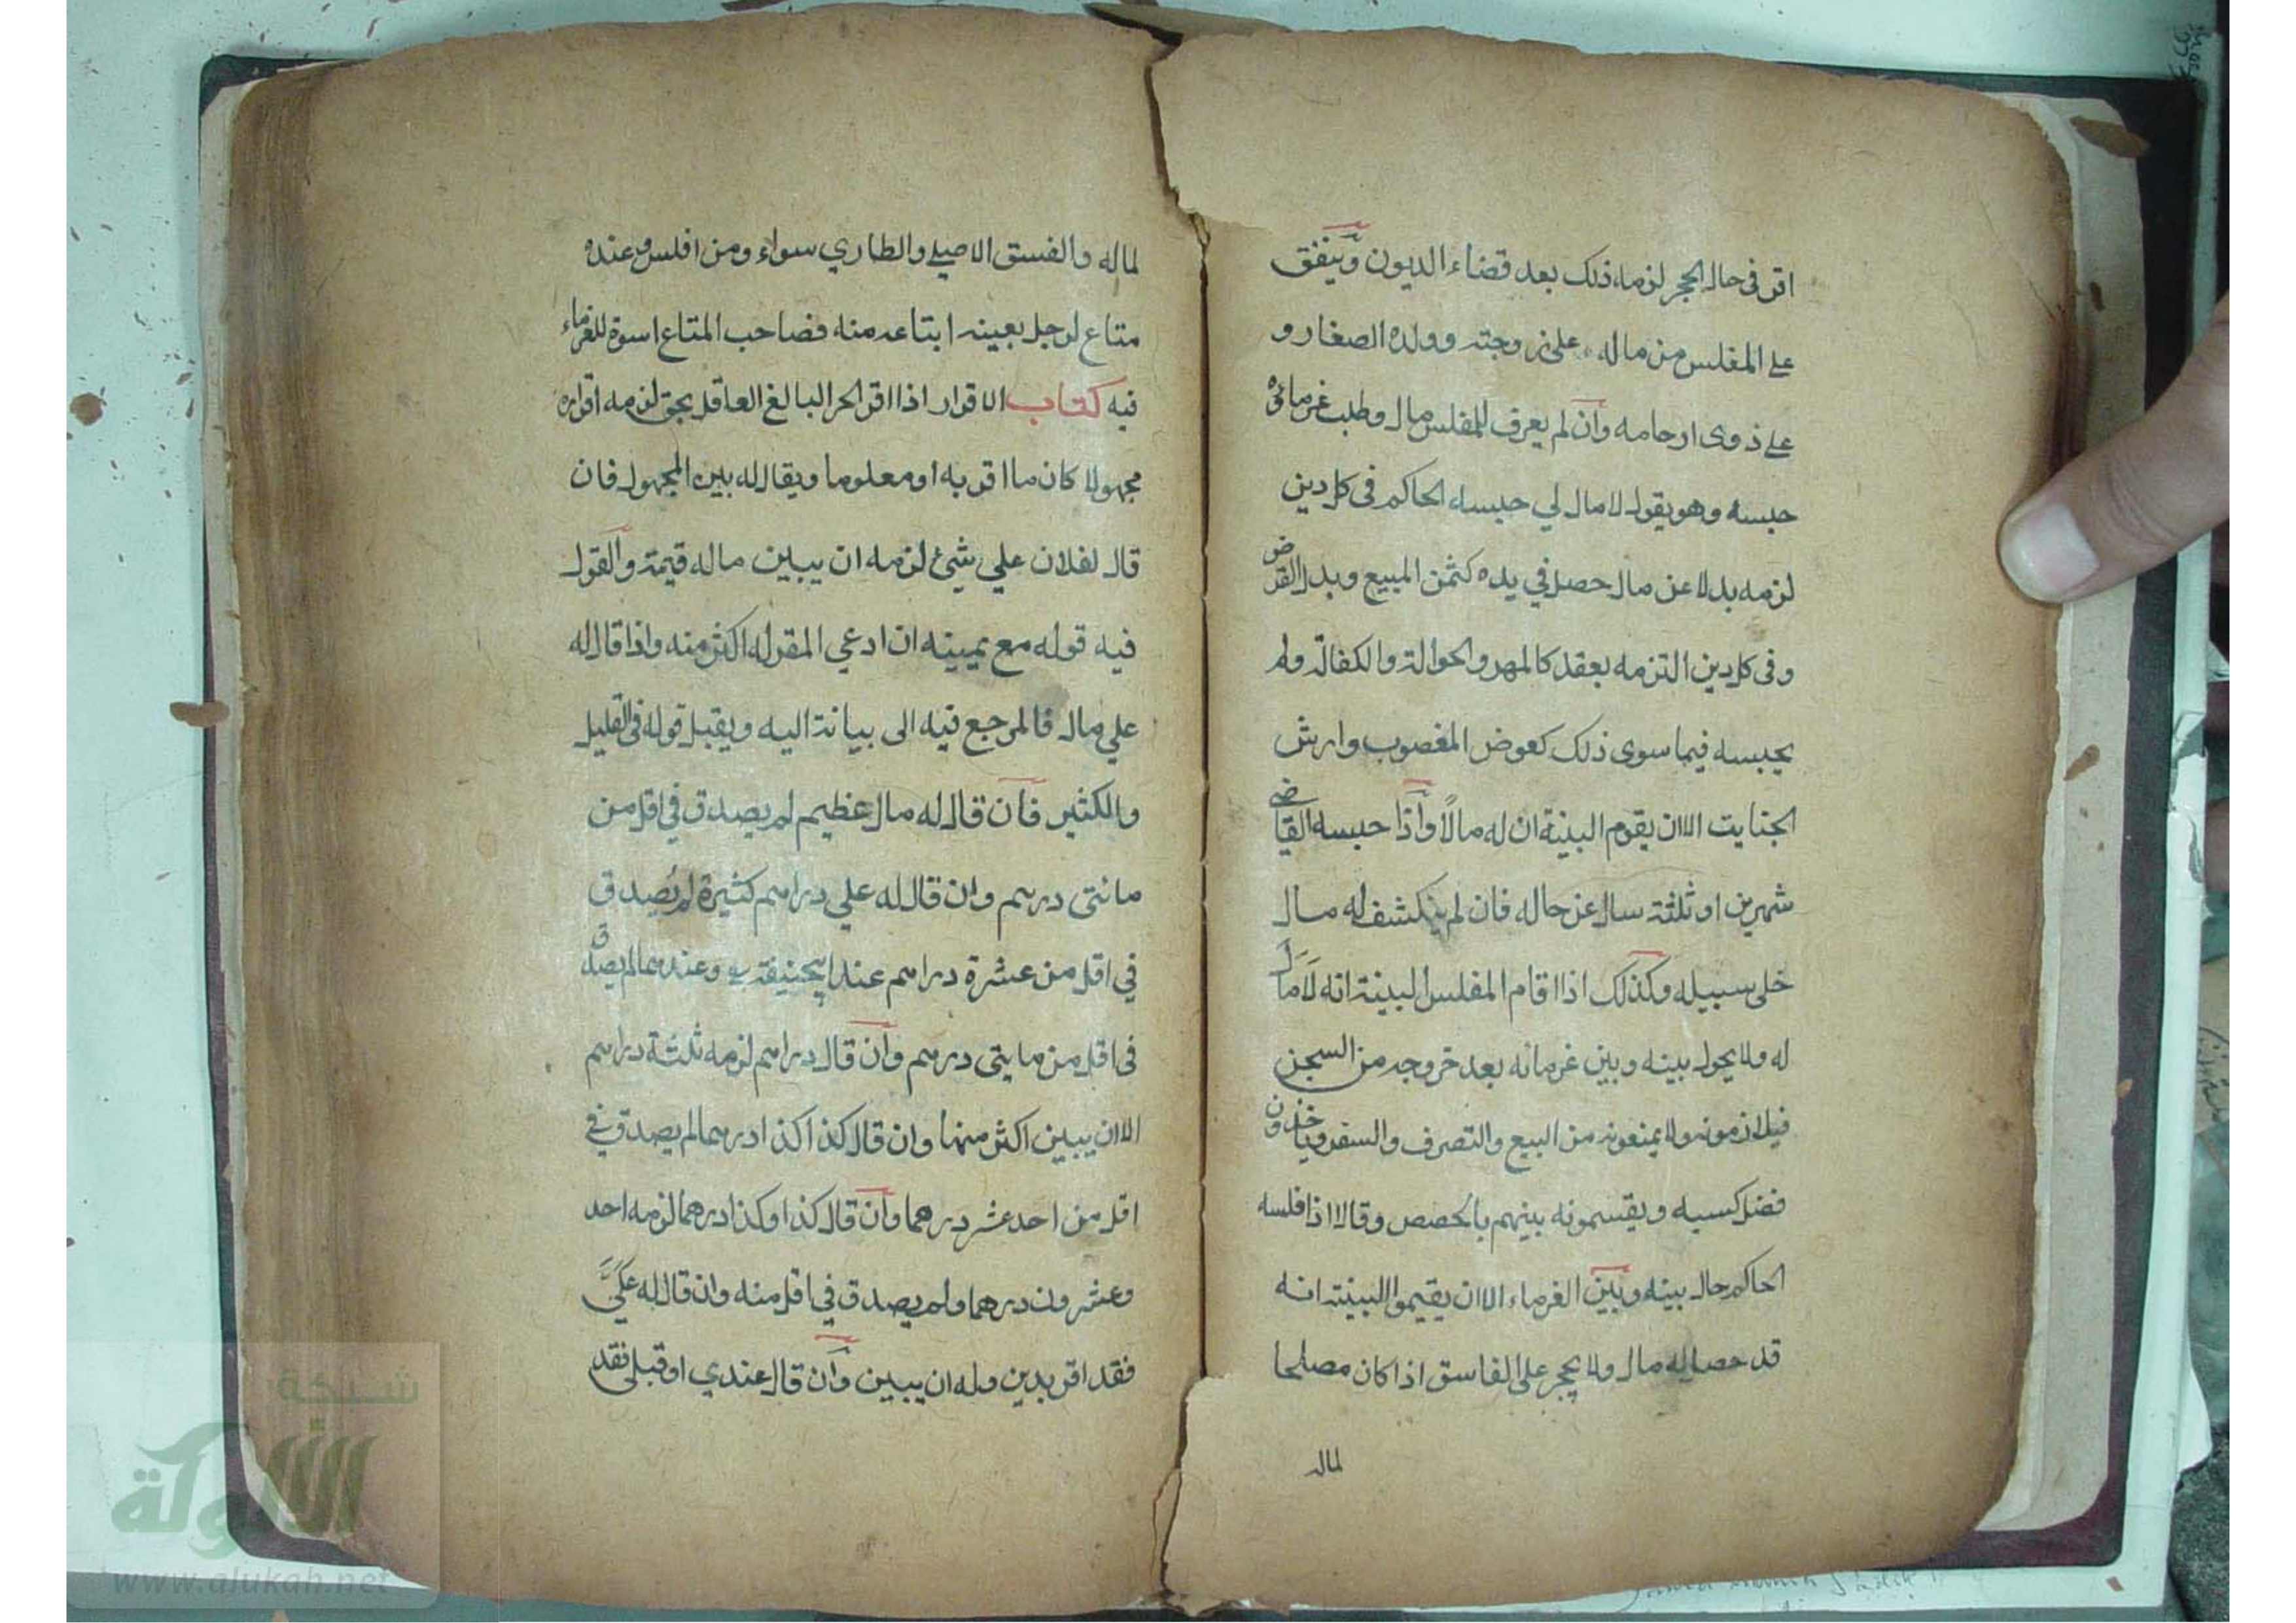 اقر فى حال الحجر لزمه ذلك بعد قضاء الديون وينفق
على المفلس من ماله على زوجته وولده الصغار و
على ذوى ارحامه وان لم يعرف للمفلس مال وطلب غرمائه
حبسه وهو يقول لا مال لي حبسه الحاكم فى كل دين
لزمه بدلا عن مال حصل في يده كثمن المبيع وبدل القرض
وفى كل دين التزمه بعقد كالمهر والحوالة والكفالة ولم
يحبسه فيما سوى ذلك كعوض المغصوب وارش
الجنايت الا ان يقوم البينة ان له مالًا واذا حبسه القاضى
شهرين او ثلثة سال عن حاله فان لم ينكشف له مال
خلى سبيله وكذلك اذا اقام المفلس البينة انه لا مال
له ولا يحول بينه وبين غرمائه بعد خروجه من السجن
فيلازمونه ولا يمنعونه من البيع والتصرف والسفر وياخذون
فضل كسبه ويقسمونه بينهم بالحصص وقالا اذا فلسه
الحاكم حال بينه وبين الغرماء الا ان يقيموا البينة انه
قد حصل له مال ولا يحجر على الفاسق اذا كان مصلحا
لماله
لماله والفسق الاصيلے والطاري سواء ومن افلس وعنده
متاع لرجل بعينه ابتاعه منه فصاحب المتاع اسوة للغرماء
فيه كتاب الاقرار اذا اقر الحر البالغ العاقل بحق لزمه اقراره
مجهولا كان ما اقر به او معلوما ويقال له بين المجهول فان
قال لفلان علي شيئ لزمه ان يبين ماله قيمة والقول
فيه قوله مع يمينه ان ادعي المقر له اكثر منه واذا قال له
علي مال فالمرجع فيه الى بيانه اليه ويقبل قوله فى القليل
والكثير فان قال له مال عظيم لم يصدق في اقل من
مائتى درهم وان قال له علي دراهم كثيرة لم يُصدق
في اقل من عشرة دراهم عند ابيحنيفة وعندهما لم يصدق
فى اقل من مايتى درهم وان قال دراهم لزمه ثلثة دراهم
الا ان يبين اكثر منها وان قال كذا كذا درهما لم يصدق في
اقل من احد عشر درهما وان قال كذا وكذا درهما لزمه احد
وعشرون درهما ولم يصدق في اقل منه وان قال له عليَّ
فقد اقر بدين وله ان يبين وان قال عندي او قبلى فقد
شبكة
الألوكة
www.alukah.net